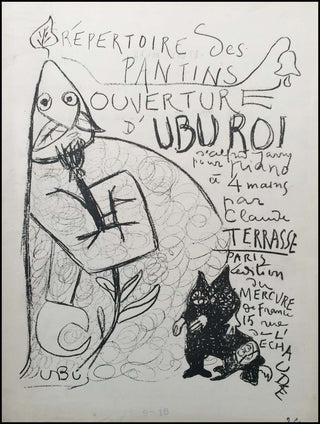 RÉPERTOIRE des
PANTINS
OUVERTURE
D' UBU ROI
d'Alfred Jarry
pour piano
à 4 mains
par
Claude
TERRASSE
PARIS
édition
du
MERCURE
de France
15 rue
de L'
ECHAUDÉ
UBU